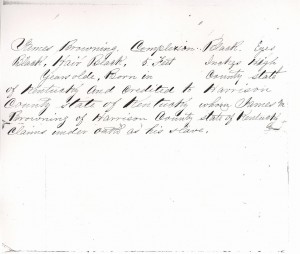 James Browning. Complexion Black. Eyes
Black, Hair Black, 5 Feet Inches High
Years olde, Born in County State
of Kentucky and Credited to Harrison
County State of Kentucky whom James
Browning of Harrison County state of Kentucky
Claims under oath as his slave.